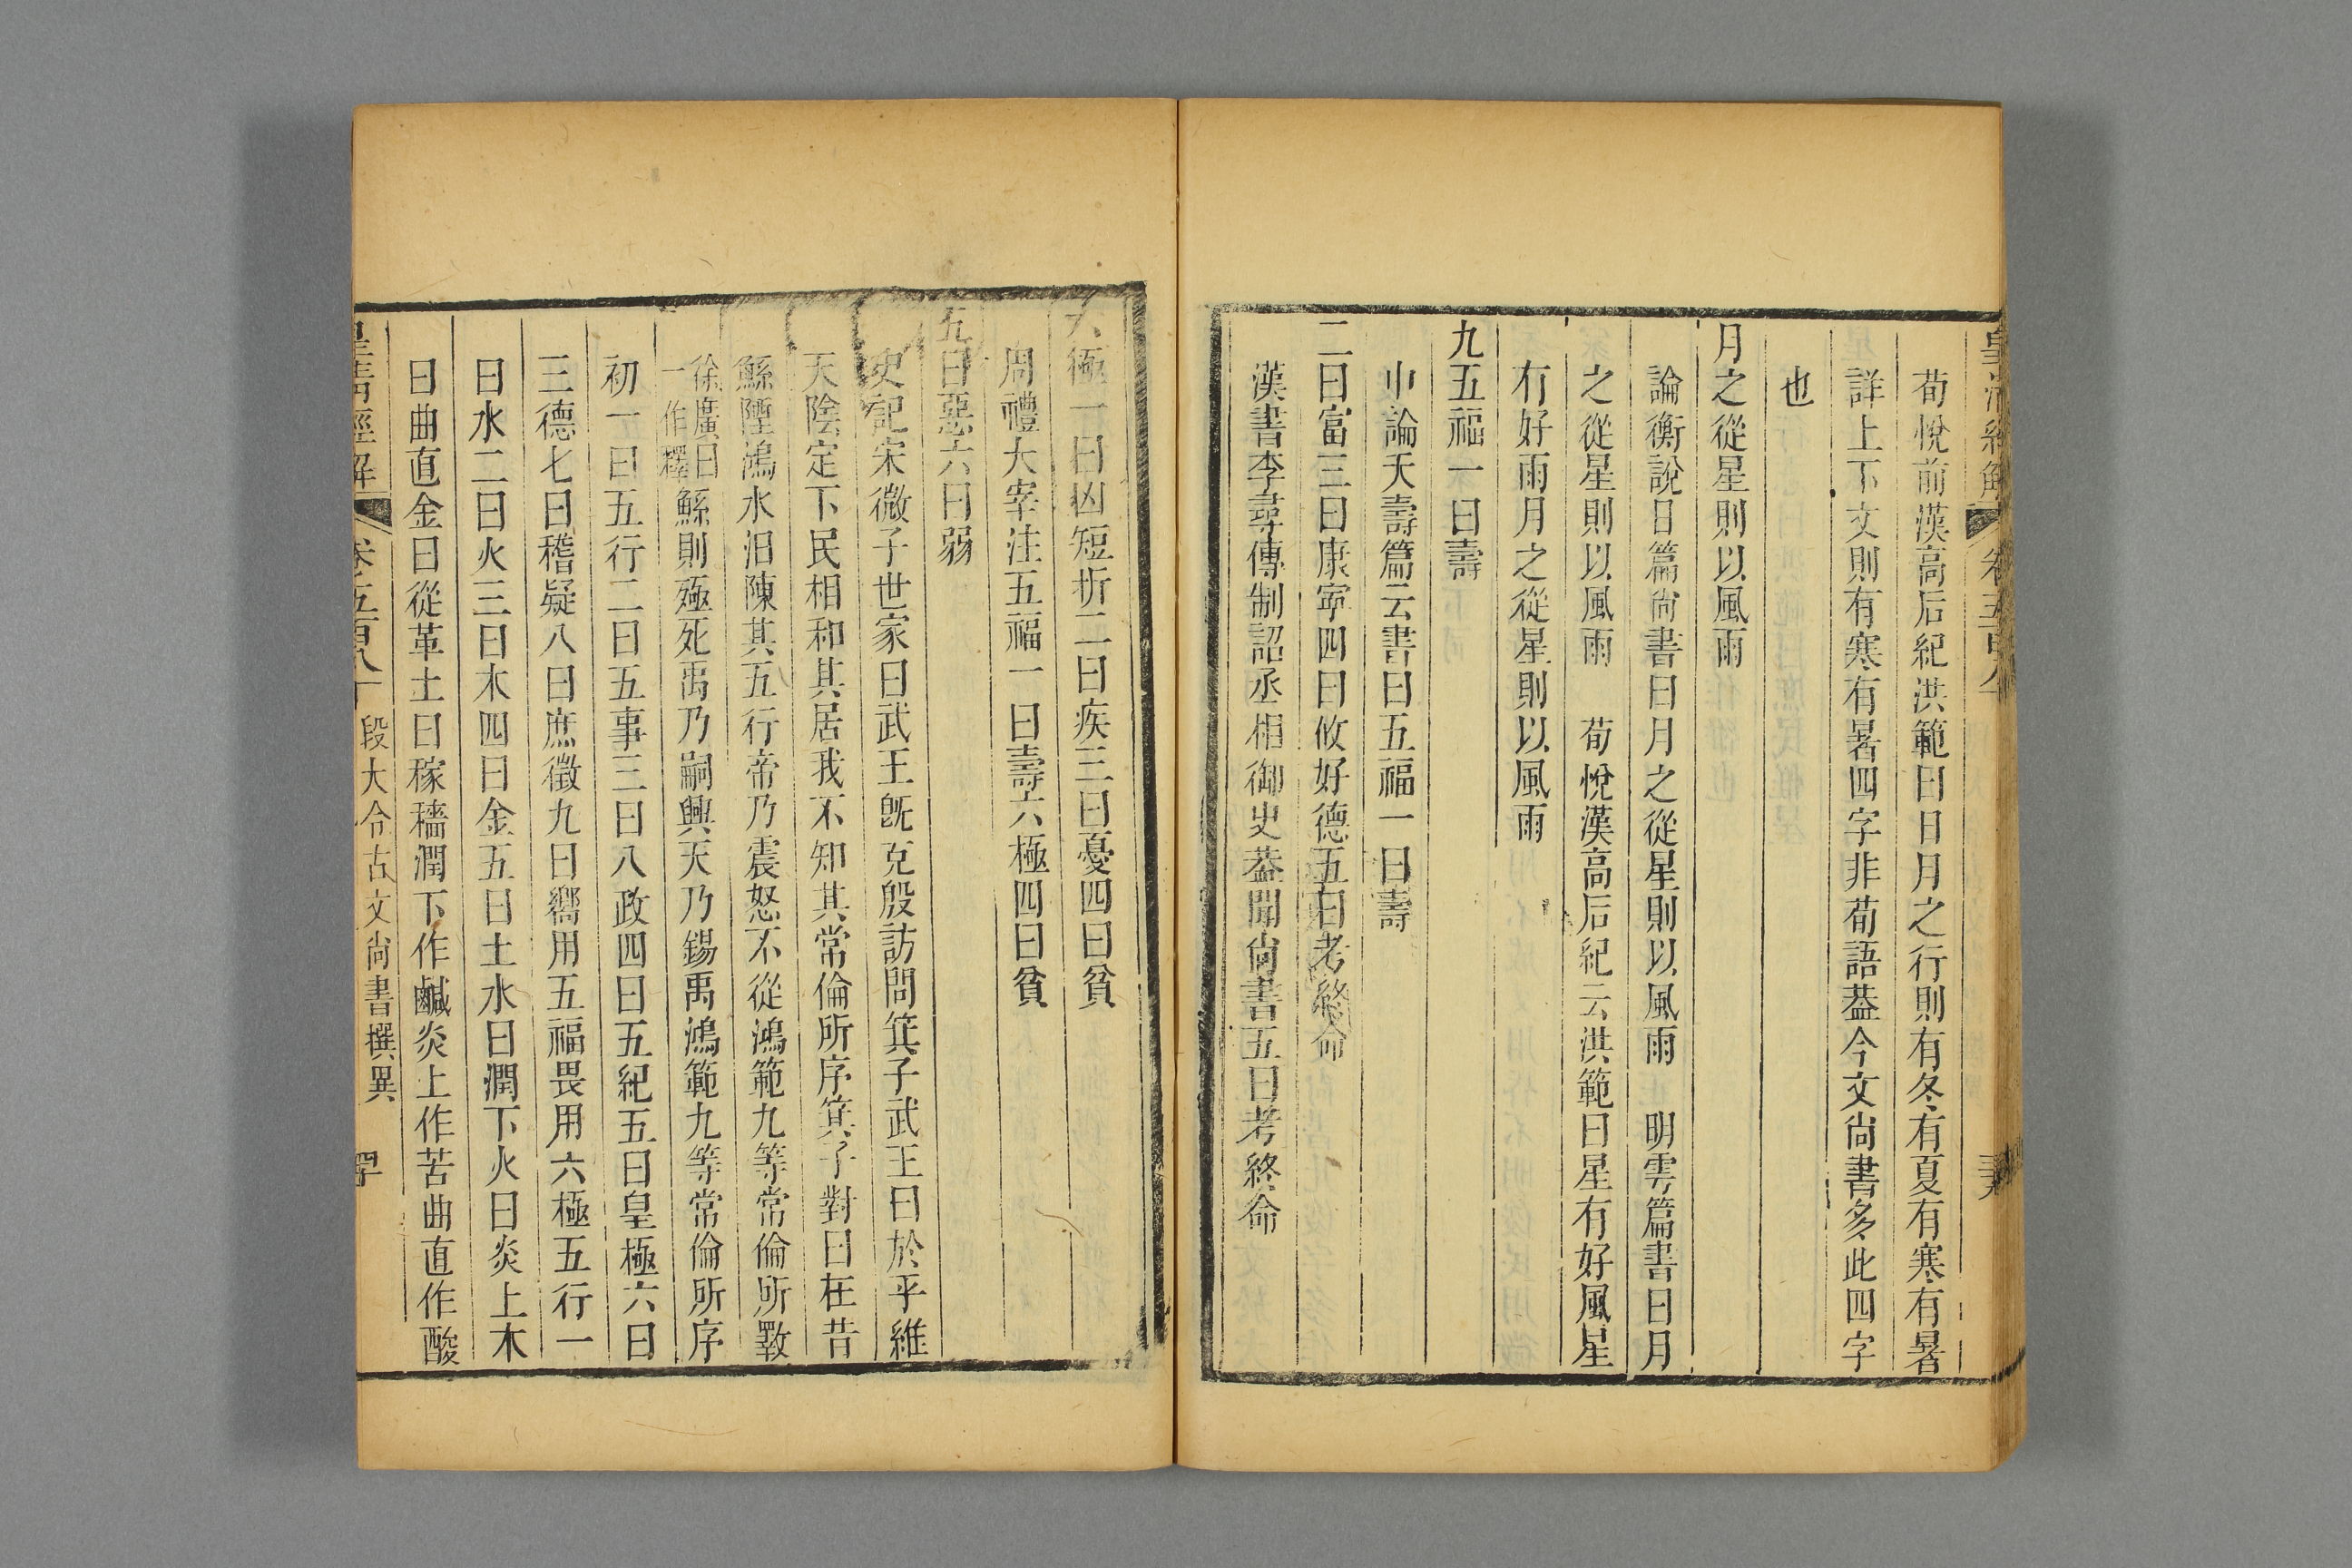 荀悅前漢高后紀洪範曰日月之行則有冬有夏有寒有暑
詳上下文則有寒有暑四字非荀語葢今文尙書多此四字
也
月之從星則以風雨
論衡說日篇尙書曰月之從星則以風雨 明雩篇書曰月
之從星則以風雨 荀悅漢高后紀云洪範曰星有好風星
有好雨月之從星則以風雨
九五福一曰壽
中論夭壽篇云書曰五福一曰壽
二曰富三曰康寧四曰攸好德五曰考終命
漢書李尋傳制詔丞相御史葢聞尙書五曰考終命
六極一曰凶短折二曰疾三曰憂四曰貧
周禮大宰注五福一曰壽六極四曰貧
五曰惡六曰弱
史記宋微子世家曰武王旣克殷訪問箕子武王曰於乎維
天陰定下民相和其居我不知其常倫所序箕子對曰在昔
鯀陻鴻水汨陳其五行帝乃震怒不從鴻範九等常倫所斁
徐廣曰一作釋鯀則殛死禹乃嗣興天乃錫禹鴻範九等常倫所序
初一曰五行二曰五事三曰八政四曰五紀五曰皇極六曰
三德七曰稽疑八曰庶徵九曰嚮用五福畏用六極五行一
曰水二曰火三曰木四曰金五曰土水曰潤下火曰炎上木
曰曲直金曰從革土曰稼穡潤下作鹹炎上作苦曲直作酸
皇淸經解 卷五百八十 段大令古文尙書撰異